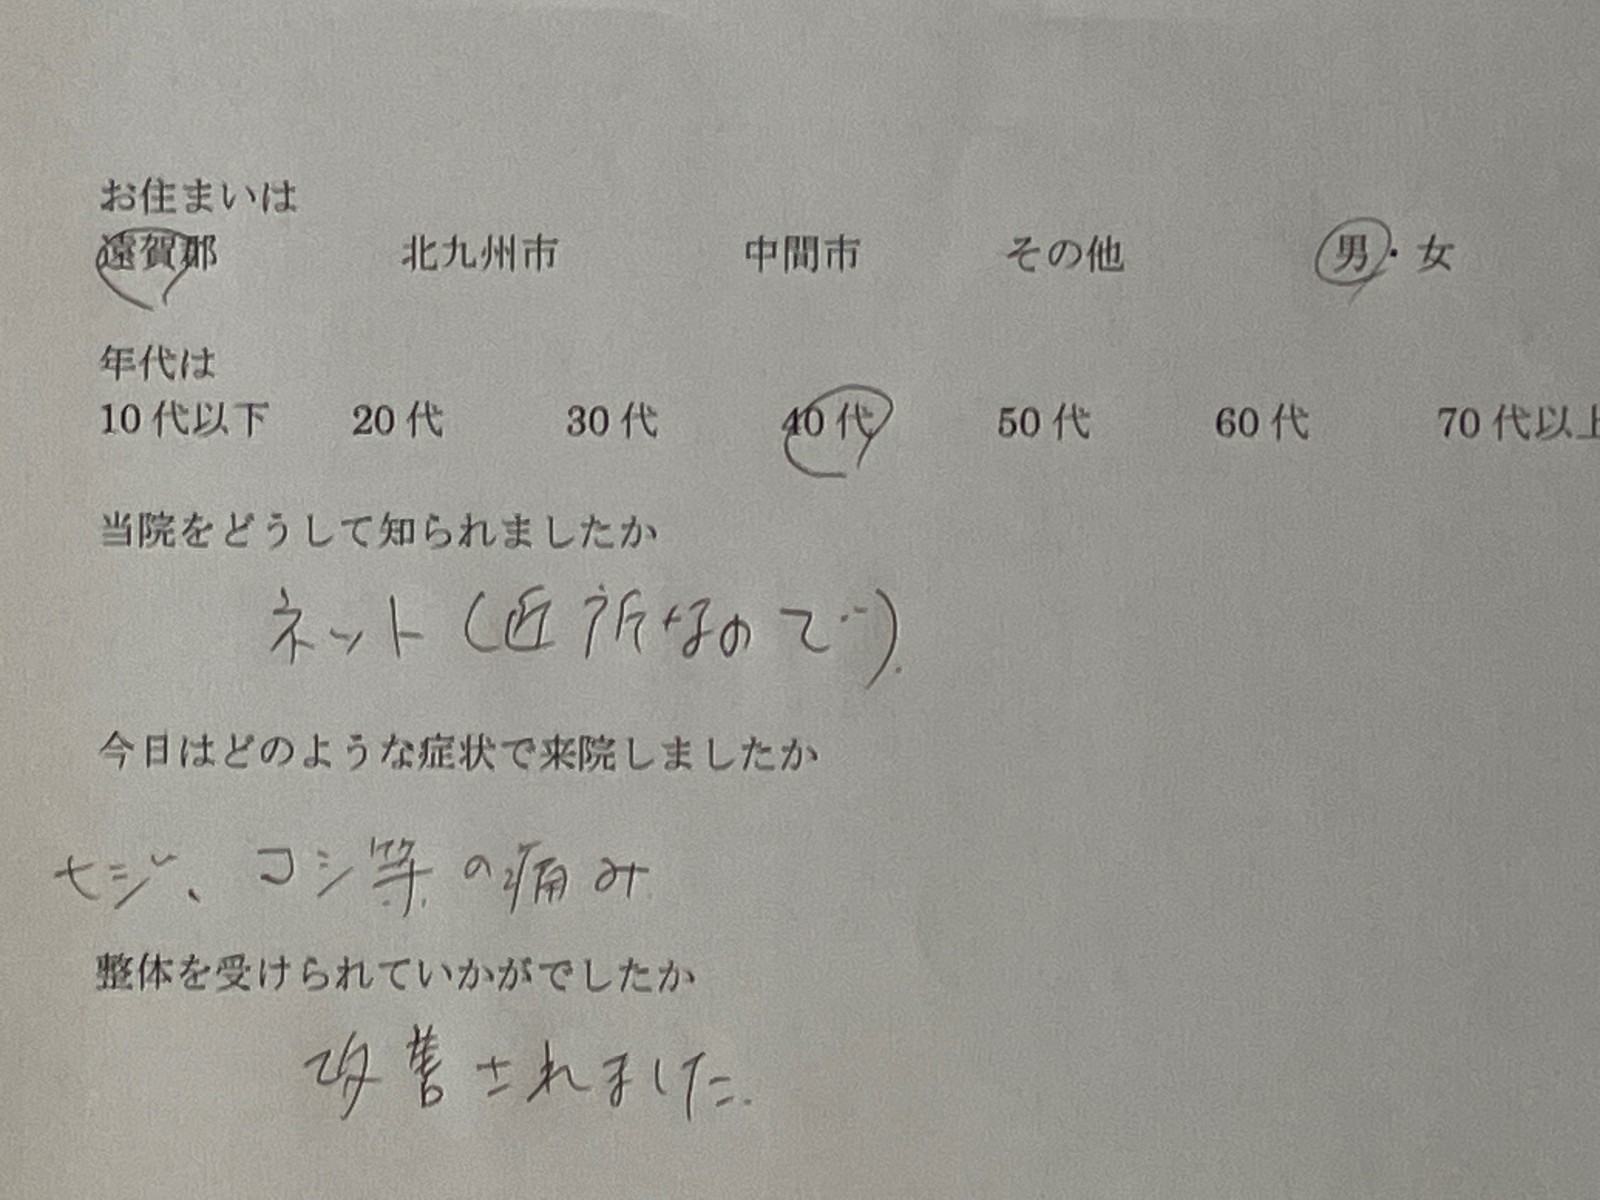 お住まいは
遠賀郡 北九州市 中間市 その他 男・女
年代は
10代以下 20代 30代 40代 50代 60代 70代以上
当院をどうして知られましたか
ネット(近所なので).
今日はどのような症状で来院しましたか
セジ、コシ等の痛み
整体を受けられていかがでしたか
改善されました.